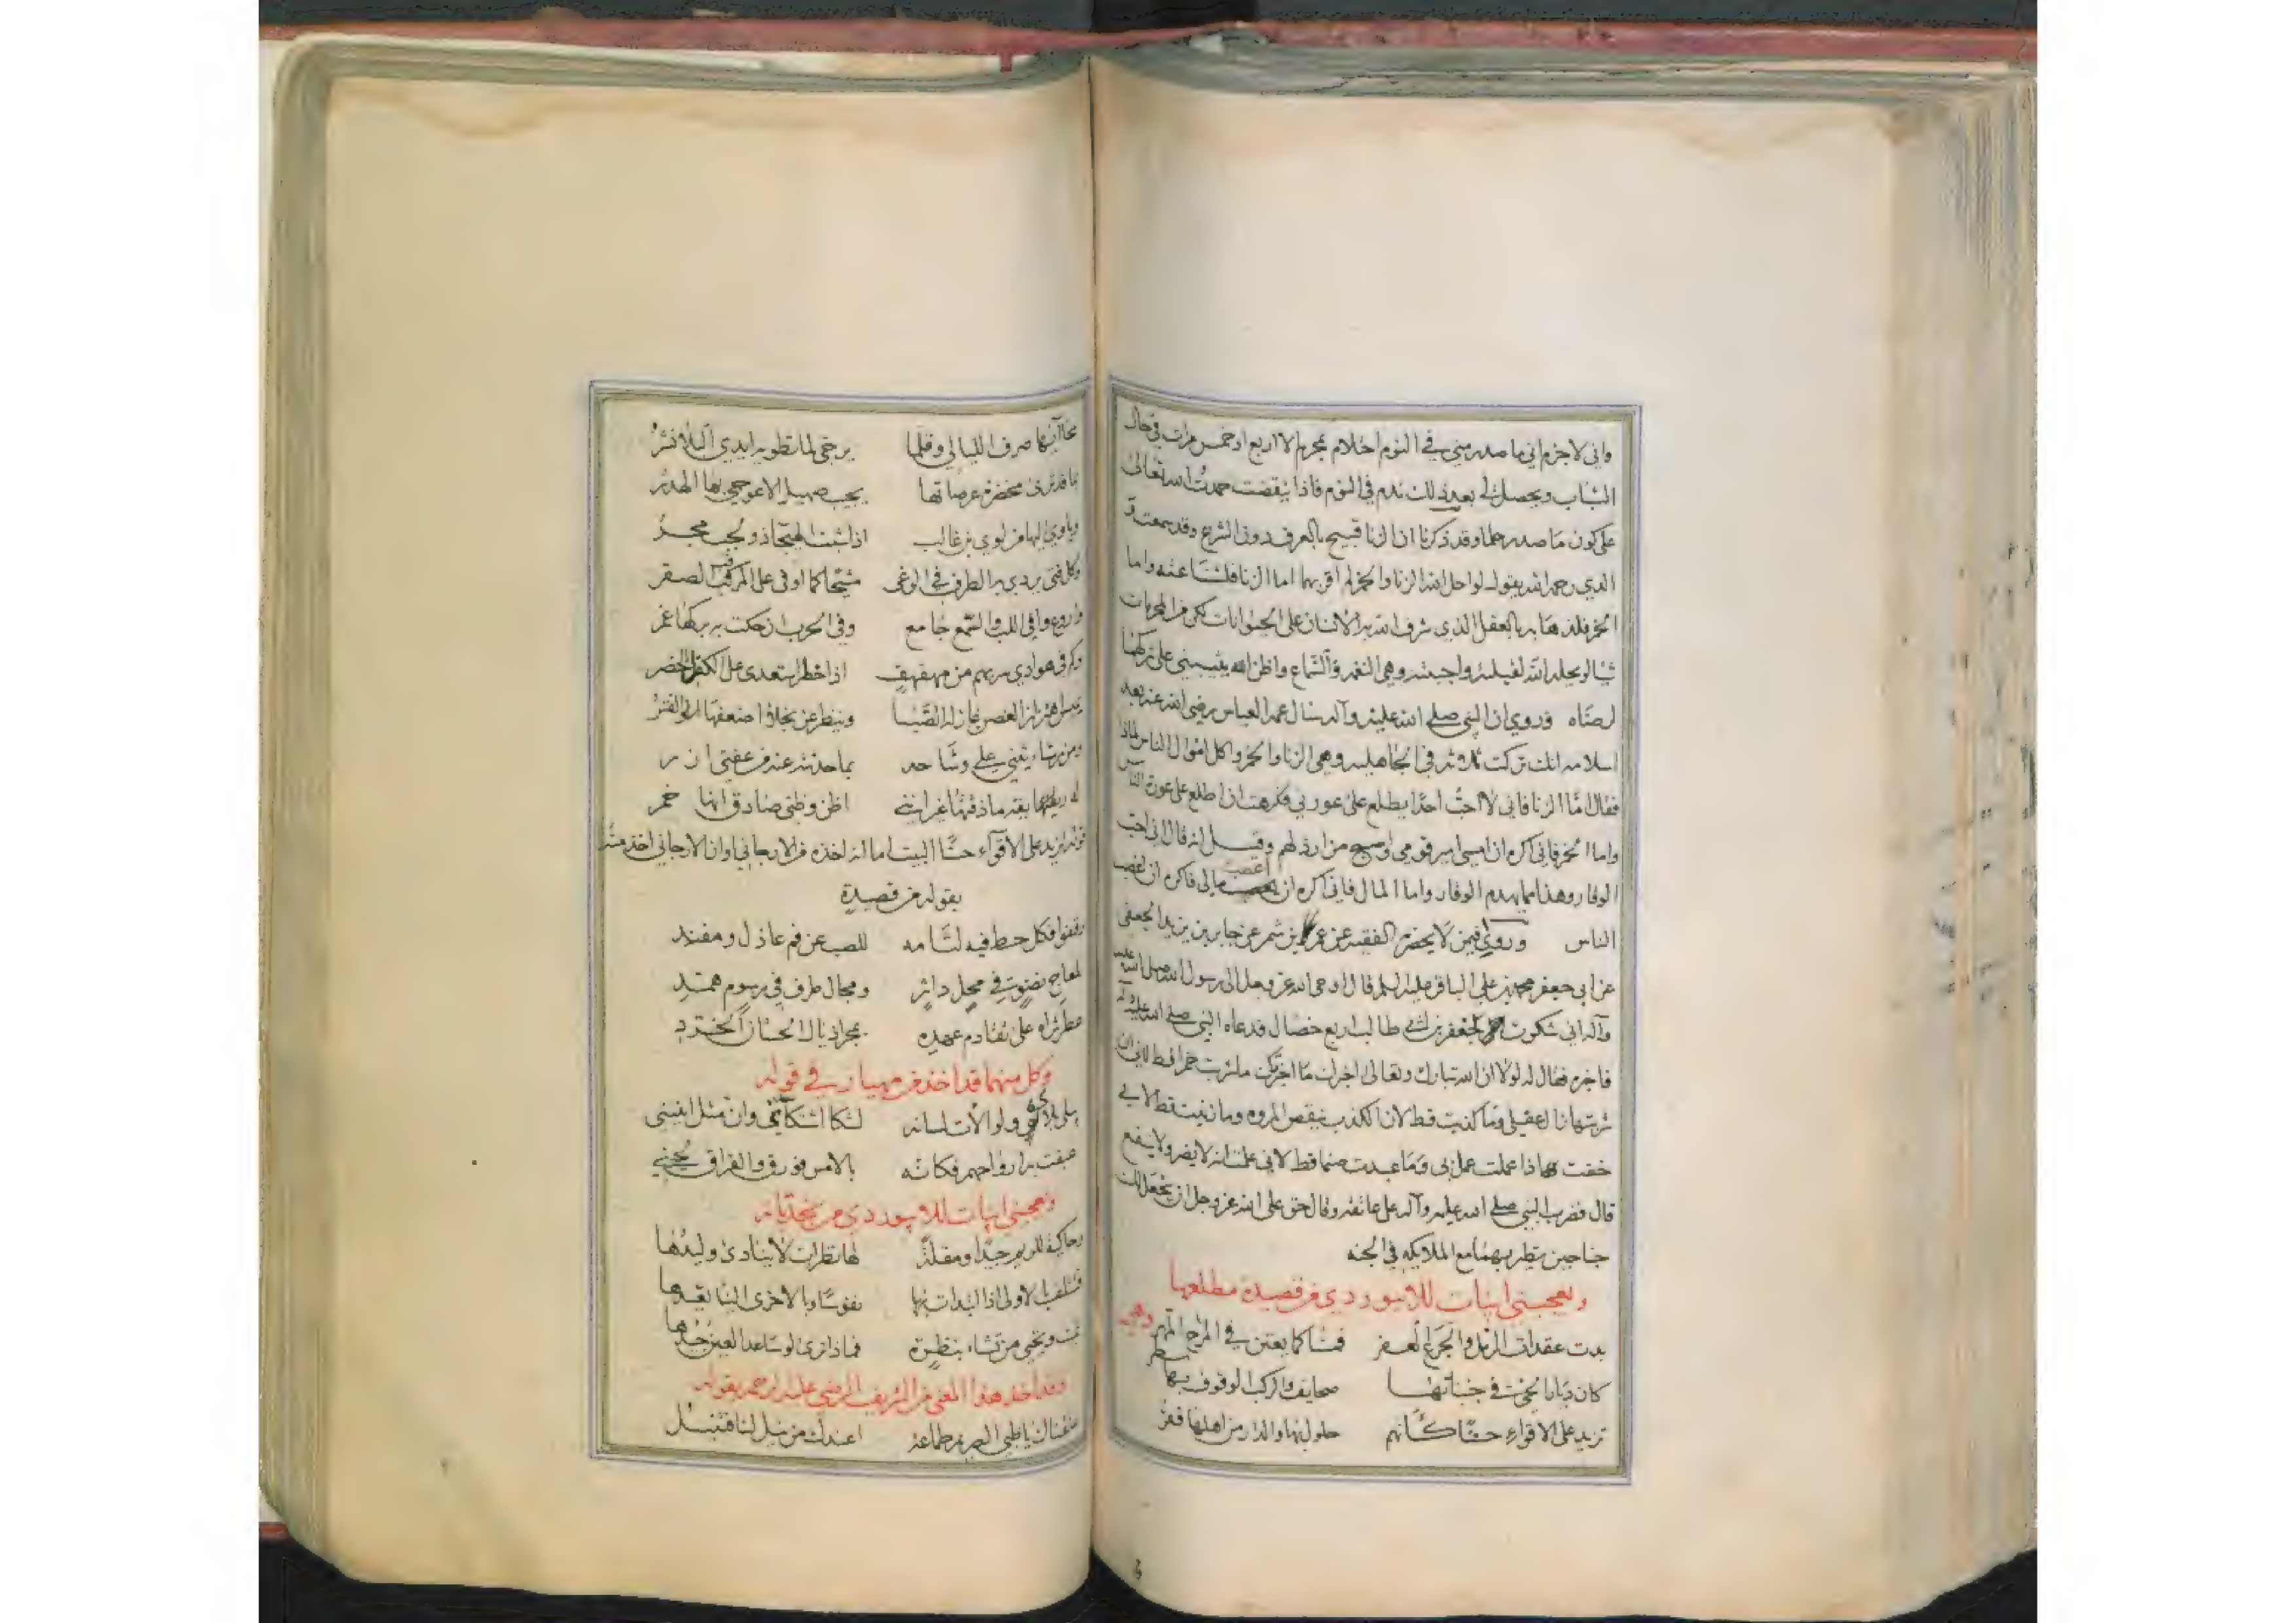 واني لاجزم اني ما صدر مني في النوم احلام بمحرم الا اربع او خمس مرات في حال
الشباب ويحصل لي بعد ذلك ندم في النوم فاذا تيقضت حمدت الله تعالى
على كون ما صدر حلما وقد ذكرنا ان الزنا قبيح بالعرف دون الشرع وقد سمعت
الذي رحمه الله يقول لو احل الله الزنا والخمر لم اقربهما اما الزنا فلما عنه واما
الخمر فلذهابه بالعقل الذي شرف الله به الانسان على الحيوانات لكن من المحرمات
شيئا لو يحله الله لفعلته واجبته وهي النغمة والسماع واظن الله يثيبني على تركها
لرضاه وروي ان النبي صلى الله عليه وآله سال عمه العباس رضي الله عنه بعد
اسلامه انك تركت ثلاثة في الجاهلية وهي الزنا والخمر واكل اموال الناس لماذا
فقال اما الزنا فاني لا احب احدا يطلع على عورتي فكرهت ان اطلع على عورة الناس
واما الخمر فاني اكره ان امسي امير قومي واصبح من ارذلهم وقيل انه قال اني احب
الوقار وهذا مما يهدم الوقار واما المال فاني اكره ان اغصب مالي فاكره ان اغصب
الناس وروي فيمن لا يحضره الفقيه عن عمرو بن شمر عن جابر بن يزيد الجعفي
عن ابي جعفر محمد بن علي الباقر عليه السلم قال اوحى الله عز وجل الى رسول الله صلى الله عليه
وآله اني شكرت لجعفر بن ابي طالب اربع خصال فدعاه النبي صلى الله عليه وآله
فاخبره فقال له لولا ان الله تبارك وتعالى اخبرك ما اخبرتك ما شربت خمرا قط لاني ان
شربتها زال عقلي وما كذبت قط لان الكذب ينقص المروه وما زنيت قط لاني
خفت اذا عملت عمل بي وما عبدت صنما قط لاني علمت انه لا يضر ولا ينفع
قال فضرب النبي صلى الله عليه وآله على عاتقه وقال حق على الله عز وجل ان يجعل لك
جناحين تطير بهما مع الملايكه في الجنه
ويعجبني ابيات للابيوردي من قصيدة مطلعها وهي
بدت عقدات الرمل والجرع العفر فمسنا كما يعتن في المرح المهر
كان ديارا لحن في جنباتها صحايف والركب الوقوف بها سطر
تزيد على الاقواء حسنا كانهم حلول بها والدار من اهلها قفر
محا آيها صرف الليالي وقلما يرجى لما تطويه ايدي البلا نشر
بما قد نرى مخضرة عرصاتها يجيب صهيل الاعوجي بها الهدر
وياوي اليها من لوي بن غالب
وكل فتى يردي به الطرف في الوغى مشيحا كما اوفى على المرقب الصقر
واروع وافي اللب والسمع جامع وفي الحرب ان حكت به بركها غمر
وكم في هوادي سربهم من مهفهف اذا خطر استعدى على الكفل الخصر
يميس اهتزاز الغصن غازله الصبا وينظر عن نجلاء اضعفها الفتر
ومن رشاء يثني علي وشاحه بما حدثته عنه من عفتي ازر
له ريقة ما ذقتها غير انني اظن وظني صادق انها خمر
قوله تزيد على الاقواء حسنا البيت اما انه اخذه من الارجاني او ان الارجاني اخذ منه
بقوله من قصيدة
وقفوا فكل حط فيه لثامه للصب عن فم عاذل ومفند
لمعاج نضو في محل داثر ومجال طرف في رسوم همد
عطر ثراه على تقادم عهده بمجر اذيال الحسان الخرد
وكل منهما قد اخذ من مهيار في قوله
عبقت به ارواحهم فكانه بالامس فورق والفراق
ويعجبني ابيات للابيوردي من نجدياته
وحاكية للريم جيدا ومقلة لها نظرات لا ينادى وليدها
فتتلف بالاولى اذا البدات بها نفوسا وبالاخرى الينا تعيدها
تميت وتحيي من تشاء بنظرة فماذا ترى لو ساعد العين جيدها
وقد اخذ هذا المعنى من الشريف الرضي عليه الرحمه بقوله